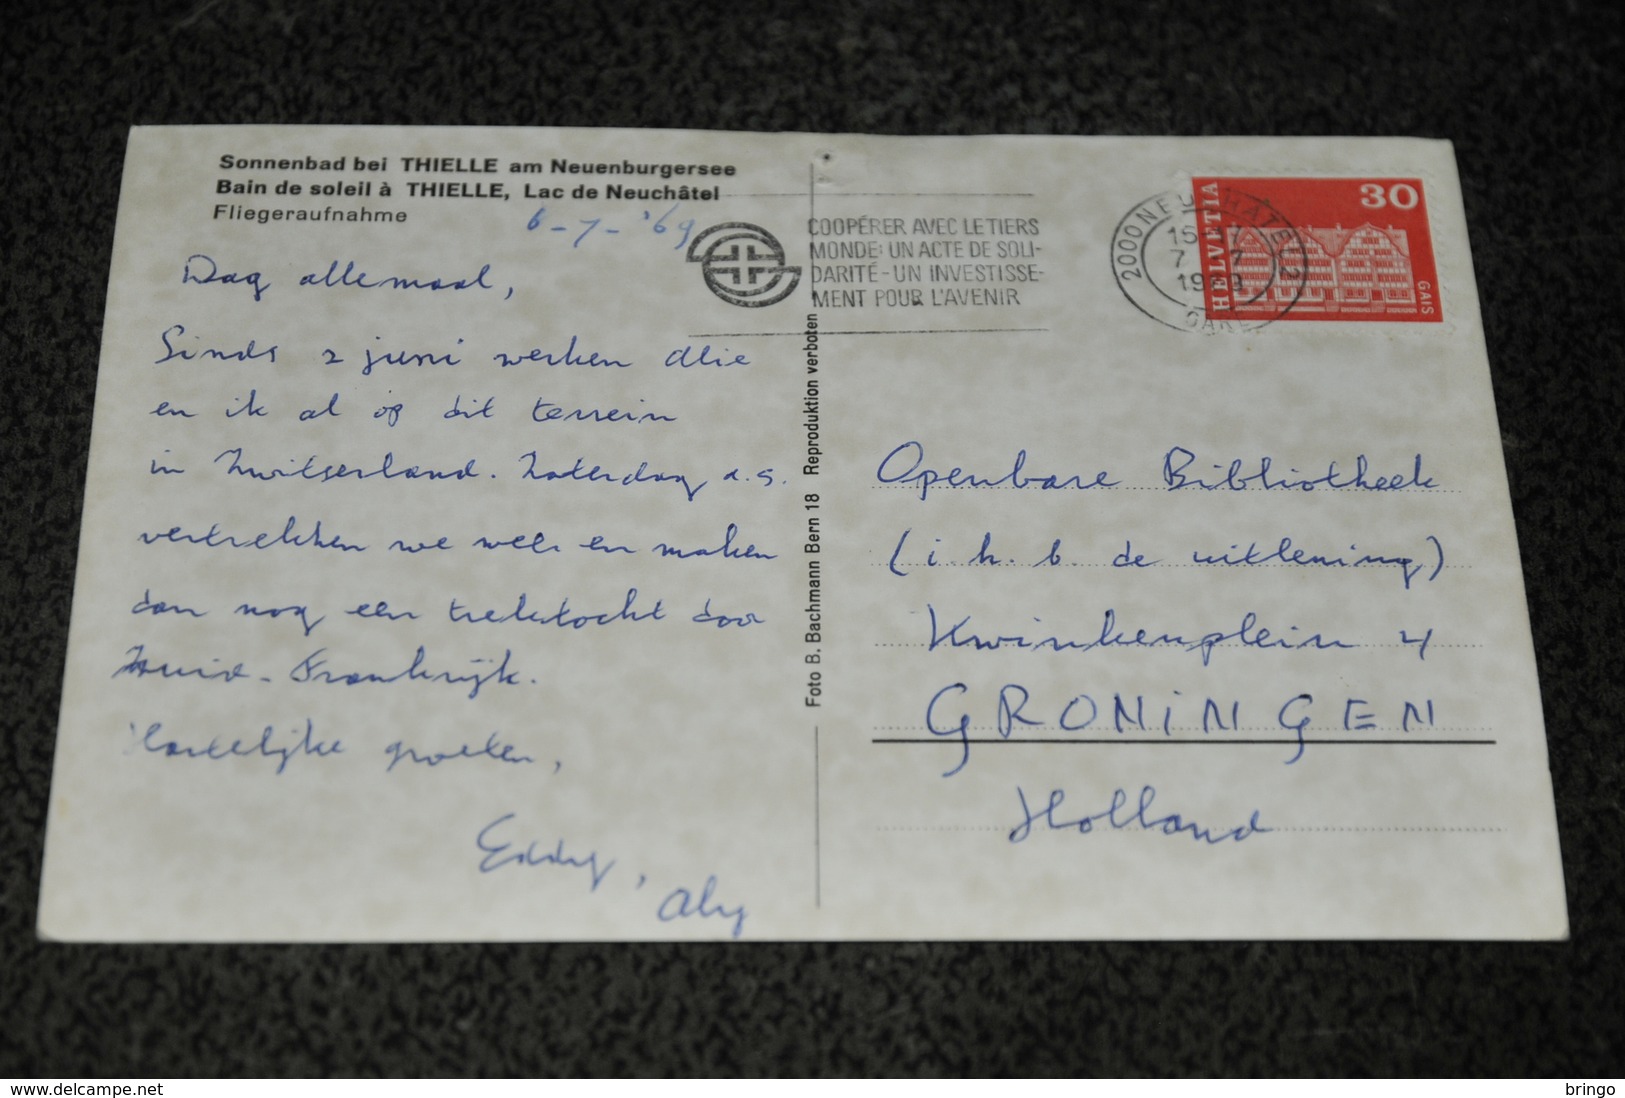 Sonnenbad bei THIELLE am Neuenburgersee
Bain de soleil à THIELLE, Lac de Neuchâtel
Fliegeraufnahme
6-7-'69
Dag allemaal,
Sinds 2 juni werken Alie
en ik al op dit terrein
in Zwitserland. Zaterdag a.s.
vertrekken we weer en maken
dan nog een trektocht door
Zuid-Frankrijk.
Hartelijke groeten,
Eddy,
Aly
Foto B. Bachmann Bern 18 Reproduktion verboten
COOPÉRER AVEC LE TIERS
MONDE: UN ACTE DE SOLI-
DARITÉ - UN INVESTISSE-
MENT POUR L'AVENIR
2000 NEUCHÂTEL 2
15-17
7 7
1969
GARE
HELVETIA
30
GAIS
Openbare Bibliotheek
(i.h.b. de uitlening)
Kwinkenplein 4
GRONiNGEN
Holland
www.delcampe.net
bringo